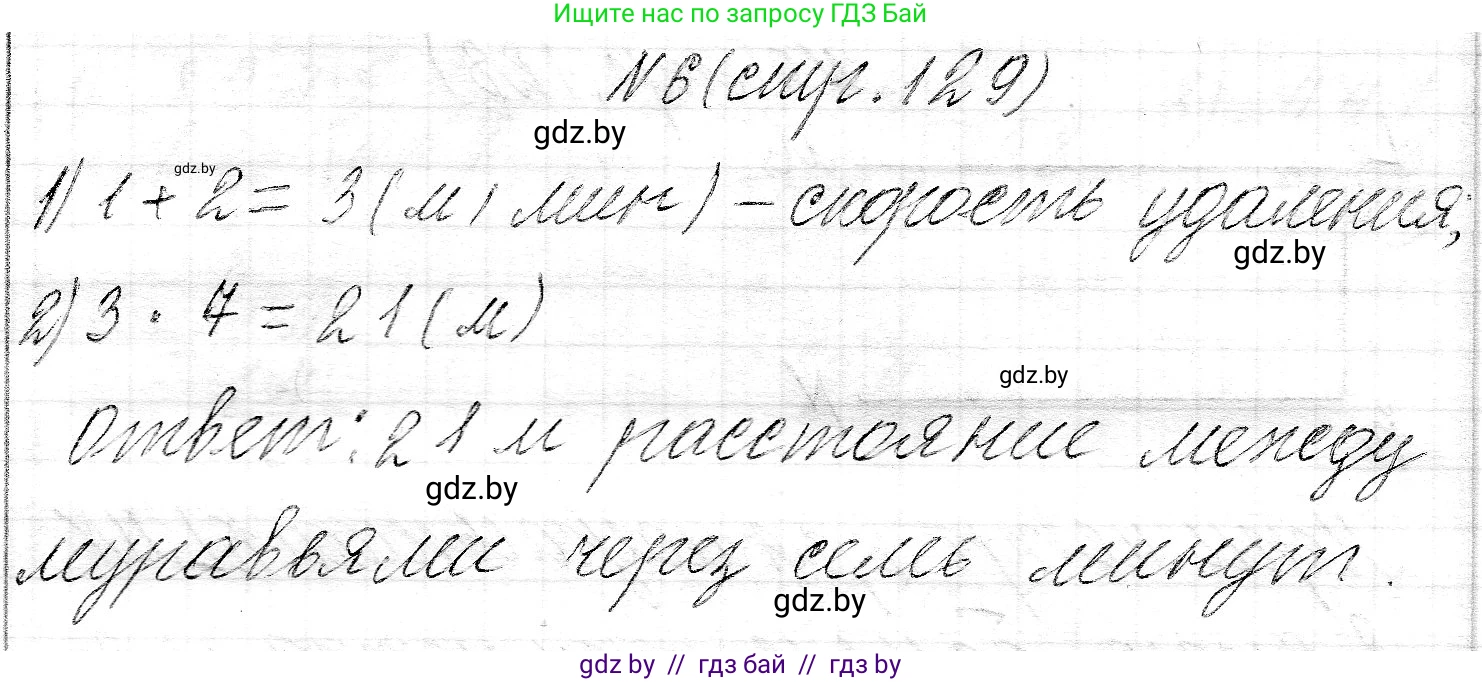 Ищите нас по запросу ГДЗ Бай
№6(стр.129)
gdz.by
gdz.by
1) 1 + 2 = 3 (м/мин) - скорость удаления;
gdz.by
2) 3 · 7 = 21 (м)
gdz.by
Ответ: 21 м расстояние между
gdz.by
муравьями через семь минут.
gdz.by
gdz by // гдз бай // гдз by